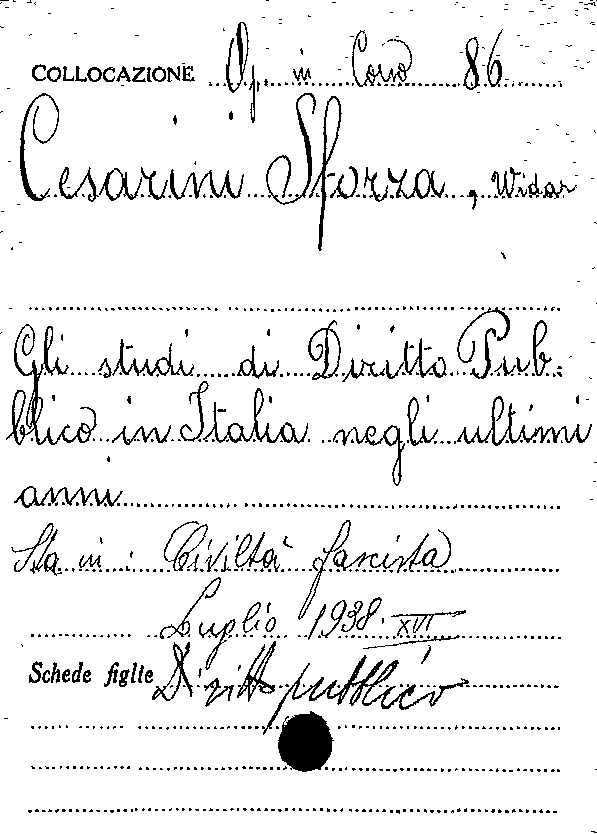 COLLOCAZIONE Op. in Cons 86
Cesarini Sforza, Widar
Gli studi di Diritto Pub-
blico in Italia negli ultimi
anni
Sta in: Civiltà fascista
Luglio 1938. XVI
Schede figlie Diritto pubblico